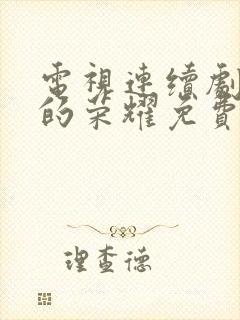 電視連續劇
的榮耀免費
理查德